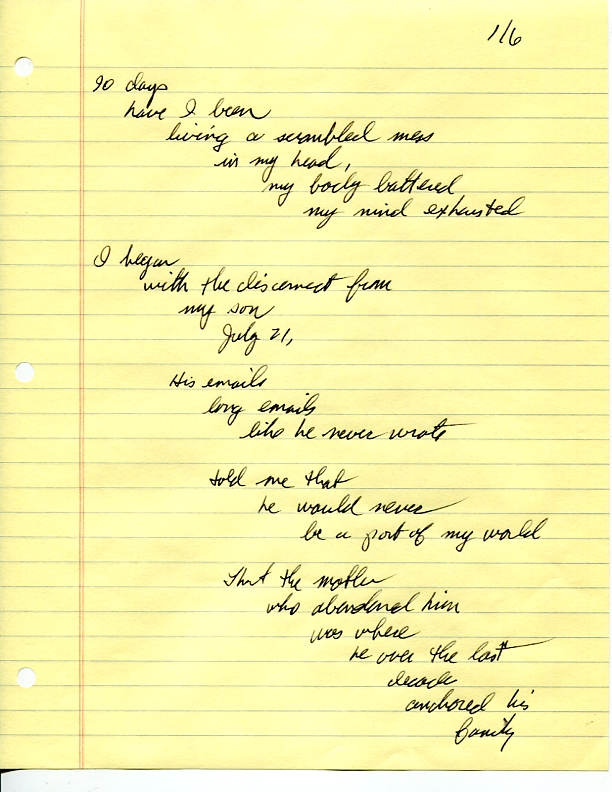 1/6
90 days
have I been
living a scrambled mess
in my head,
my body battered
my mind exhausted
I began
with the disconnect from
my son
July 21,
His emails
long emails
like he never wrote
told me that
he would never
be a part of my world
That the mother
who abandoned him
was where
he over the last
decade
anchored his
family